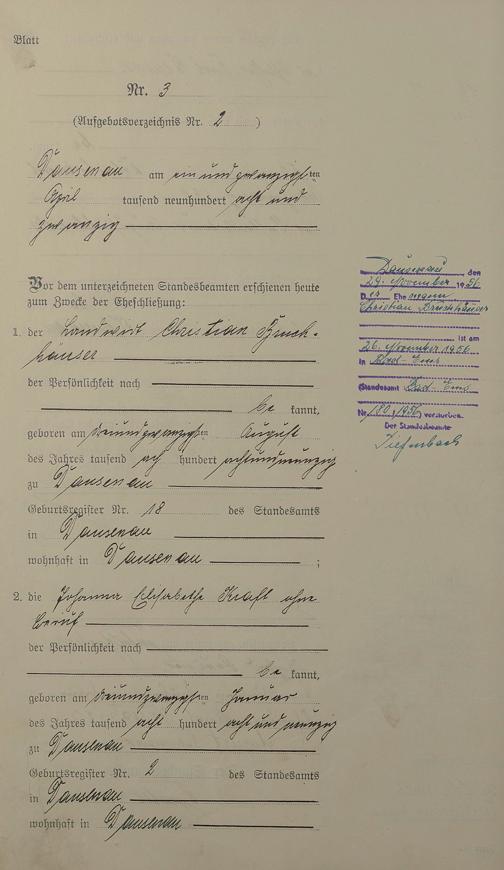 Blatt
Nr. 3
(Aufgebotsverzeichnis Nr. 2 )
Dausenau am ein und zwanzigsten
April tausend neunhundert acht und
zwanzig
Vor dem unterzeichneten Standesbeamten erschienen heute
zum Zwecke der Eheschließung:
1. der Landwirt Christian Bruch-
häuser
der Persönlichkeit nach
be kannt,
geboren am dreiundzwanzigsten August
des Jahres tausend acht hundert achtundneunzig
zu Dausenau
Geburtsregister Nr. 18 des Standesamts
in Dausenau
wohnhaft in Dausenau ;
2. die Johanna Elisabethe Kraft ohne
Beruf
der Persönlichkeit nach
be kannt,
geboren am dreiundzwanzigsten Januar
des Jahres tausend acht hundert acht und neunzig
zu Dausenau
Geburtsregister Nr. 2 des Standesamts
in Dausenau
wohnhaft in Dausenau
Dausenau den
29. November 1956.
Ehe
Christian Bruchhäuser
ist am
26. November 1956
in Bad-Ems
(Standesamt Bad-Ems
Nr. 180/1956) verstorben.
Der Standesbeamte
Tiefenbach